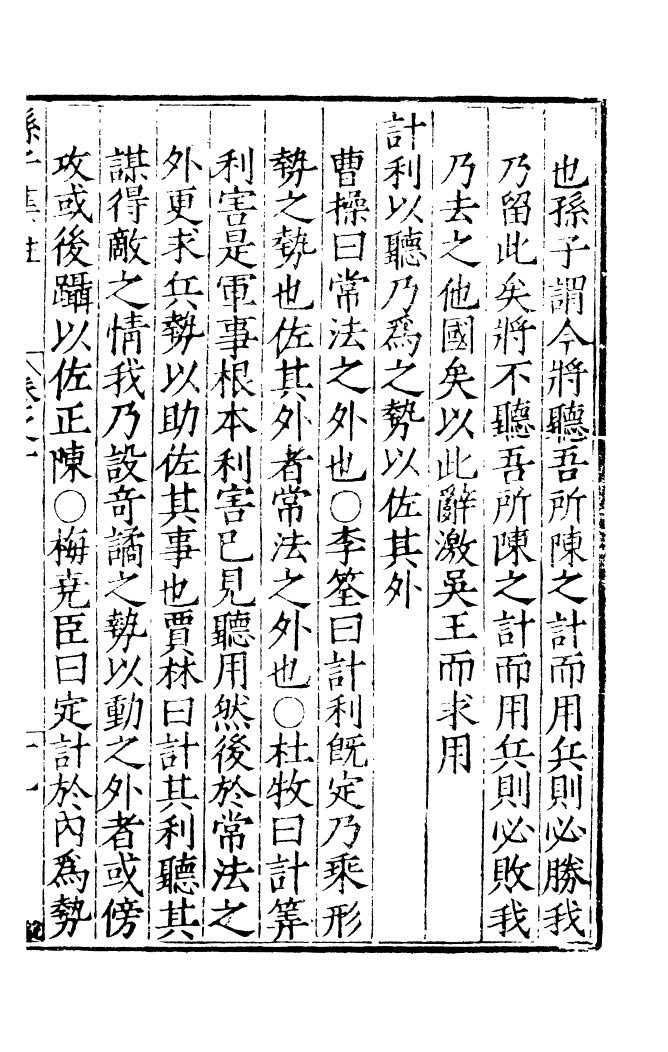 也孫子謂今將聽吾所陳之計而用兵則必勝我
乃留此矣將不聽吾所陳之計而用兵則必敗我
乃去之他國矣以此辭激吳王而求用
計利以聽乃爲之勢以佐其外
曹操曰常法之外也○李筌曰計利旣定乃乘形
勢之勢也佐其外者常法之外也○杜牧曰計筭
利害是軍事根本利害已見聽用然後於常法之
外更求兵勢以助佐其事也賈林曰計其利聽其
謀得敵之情我乃設奇譎之勢以動之外者或傍
攻或後躡以佐正陳○梅堯臣曰定計於內爲勢